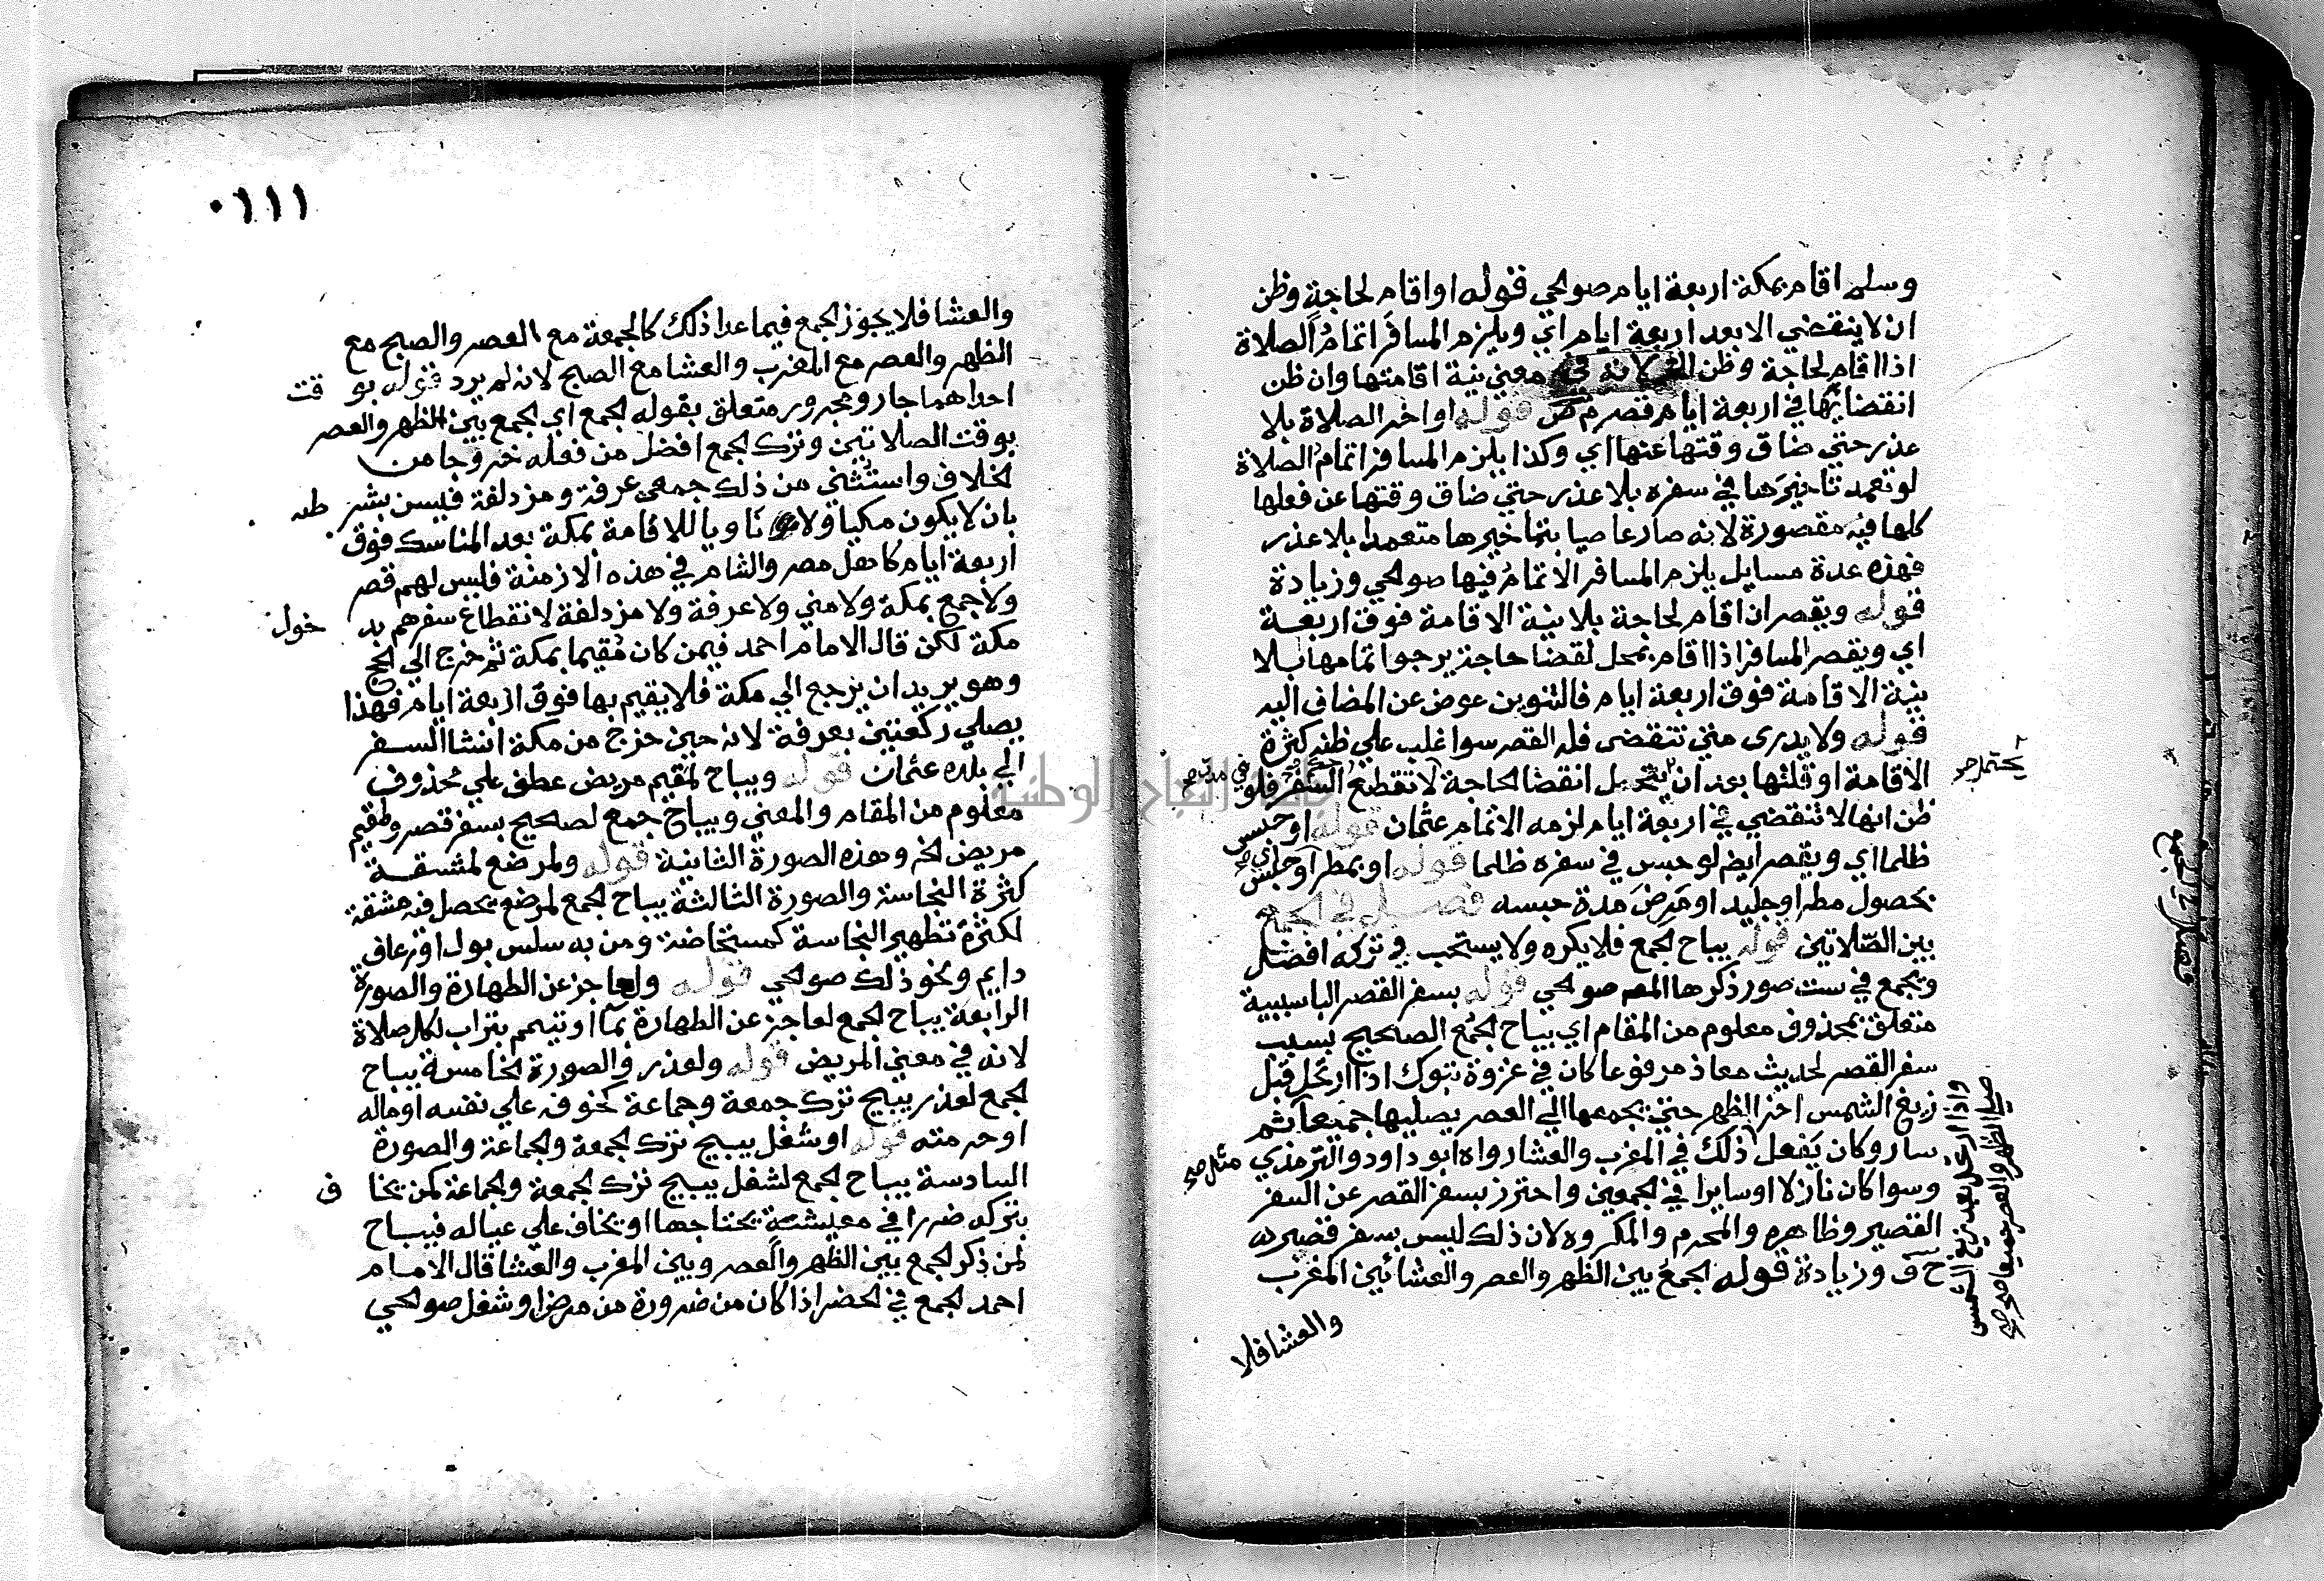 وسلم اقام بمكة اربعة ايام صوالحي قوله او اقام لحاجة وظن
ان لا ينقضي الا بعد اربعة ايام اي ويلزم المسافر اتمام الصلاة
اذا اقام لحاجة وظن لانه في معني نية اقامتها وان ظن
انقضائها في اربعة ايام قصر م ص قوله او اخر الصلاة بلا
عذر حتي ضاق وقتها عنها اي وكذا يلزم المسافر اتمام الصلاة
لو تعمد تاخيرها في سفره بلا عذر حتي ضاق وقتها عن فعلها
كلها فيه مقصورة لانه صار عاصيا بتاخيرها متعمدا بلا عذر
فهذه عدة مسايل يلزم المسافر الاتمام فيها صوالحي وزيادة
قوله ويقصر ان اقام لحاجة بلا نية الاقامة فوق اربعة
اي ويقصر المسافر اذا اقام بمحل لقضا حاجة يرجوا تمامها بلا
نية الاقامة فوق اربعة ايام فالتنوين عوض عن المضاف اليه
قوله ولا يدري متي تنقضي فله القصر سوا غلب علي ظنه كثرة
الاقامة او قلتها بعد ان يحتمل انقضا الحاجة لا تقطع السفر فلو
يحتمل صح
في مدة صح
ظن انها لا تنقضي في اربعة ايام لزمه الاتمام عثمان قوله او حبس
ظلما اي ويقصر ايض لو حبس في سفره ظلما قوله او بمطر اي او حبس
بحصول مطر او جليد او مرض مدة حبسه فصل في الجمع
بين الصلاتين قوله يباح لجمع فلا يكره ولا يستحب وتركه افضل
ويجمع في ست صور ذكرها المص صوالحي قوله بسفر القصر الباسببية
متعلق بمحذوف معلوم من المقام اي يباح لجمع الصحيح بسبب
سفر القصر لحديث معاذ مرفوعا كان في غزوة تبوك اذا ارتحل قبل
زيغ الشمس اخر الظهر حتي يجمعها الي العصر يصليها جميعا ثم
سار وكان يفعل ذلك في المغرب والعشا رواه ابو داود والترمذي
مثل صح
وسوا كان نازلا او سايرا في الجمعين واحترز بسفر القصر عن السفر
القصير وظاهره والمحرم والمكروه لان ذلك ليس بسفر قصير
ح ف وزيادة قوله لجمع بين الظهر والعصر والعشائين المغرب
والعشا فلا
واذا ارتحل بعد زيغ الشمس
صلي الظهر والعصر جميعا صح
فصل في الجمع
٠١١١
والعشا فلا يجوز لجمع فيما عدا ذلك كالجمعة مع العصر والصبح مع
الظهر والعصر مع المغرب والعشا مع الصبح لانه لم يرد قوله بوقت
احداهما جار ومجرور متعلق بقوله لجمع اي لجمع بين الظهر والعصر
بوقت الصلاتين وترك لجمع افضل من فعله خروجا من
لخلاف واستثني من ذلك جمعي عرفة ومزدلفة فيسن بشرطه
بان لا يكون مكيا ولا ناويا للاقامة بمكة بعد المناسك فوق
اربعة ايام كاهل مصر والشام في هذه الازمنة فليس لهم قصر
ولا جمع بمكة ولا مني ولا عرفة ولا مزدلفة لانقطاع سفرهم بدخول
مكة لكن قال الامام احمد فيمن كان مقيما بمكة ثم خرج الي لحج
وهو يريد ان يرجع الي مكة فلا يقيم بها فوق اربعة ايام فهذا
يصلي ركعتين بعرفة لانه حين خرج من مكة انشا السفر
الي بلده عثمان قوله ويباح لمقيم مريض عطف علي محذوف
معلوم من المقام والمعني ويباح جمع لصحيح بسفر قصر ولمقيم
مريض لخ وهذه الصورة الثانية قوله ولمرضع لمشقة
كثرة النجاسة والصورة الثالثة يباح لجمع لمرضع يحصل فيه مشقة
لكثرة تطهير النجاسة كمستحاضة ومن به سلس بول او رعاف
دايم ونحو ذلك صوالحي قوله ولعاجز عن الطهارة والصورة
الرابعة يباح لجمع لعاجز عن الطهارة بما او تيمم بتراب لكل صلاة
لانه في معني المريض قوله ولعذر والصورة لخامسة يباح
لجمع لعذر يبيح ترك جمعة وجماعة كخوفه علي نفسه او ماله
او حرمته قوله او شغل يبيح ترك لجمعة ولجماعة والصورة
السادسة يباح لجمع لشغل يبيح ترك لجمعة ولجماعة كمن يخاف
بتركه ضررا في معيشة يحتاجها او يخاف علي عياله فيباح
لمن ذكر لجمع بين الظهر والعصر وبين المغرب والعشا قال الامام
احمد لجمع في لحضر اذا كان من ضرورة من مرض او شغل صوالحي